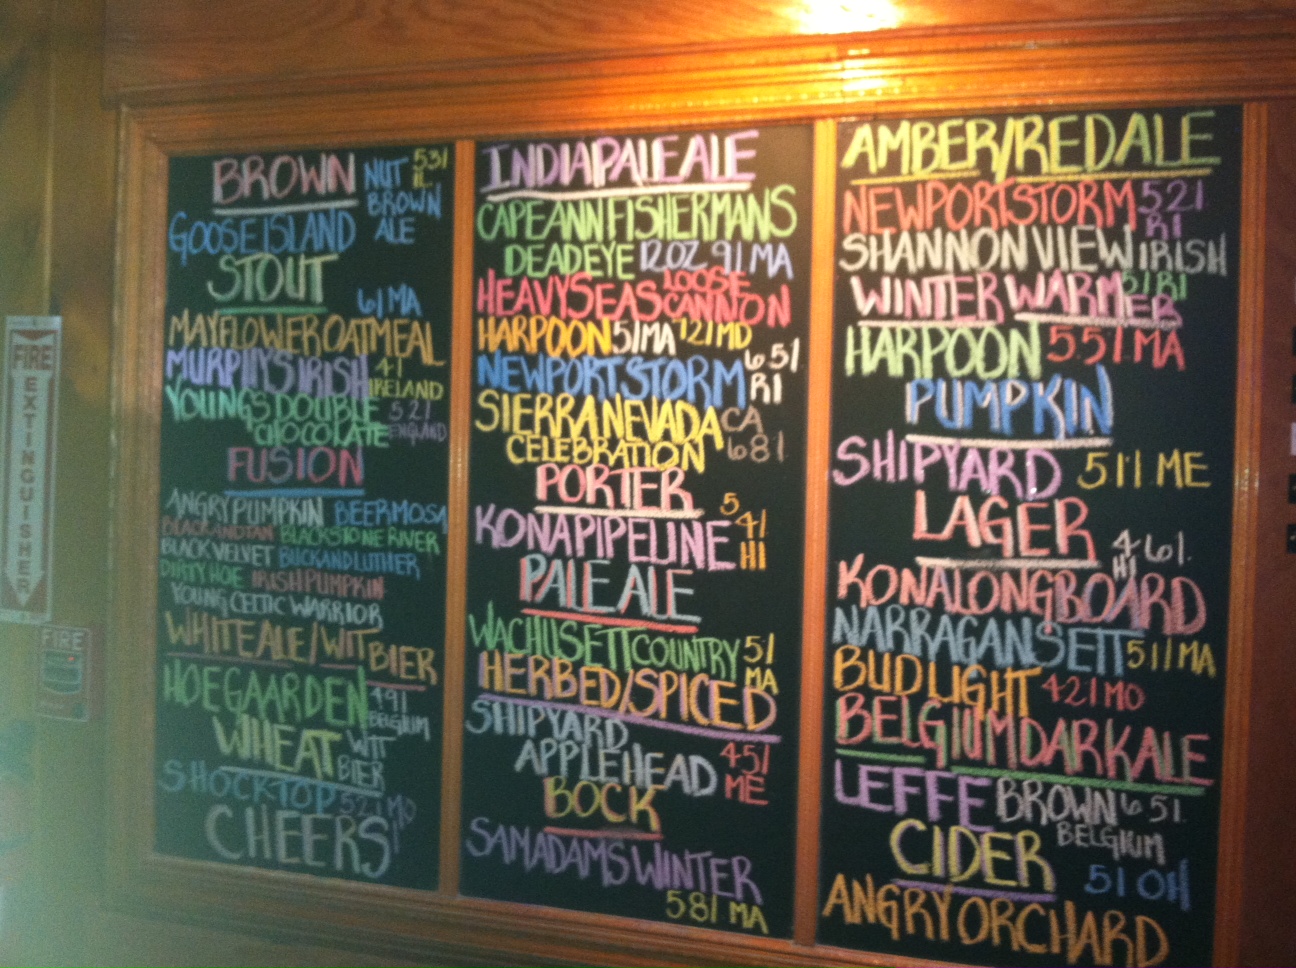 FIRE
EXTINGUISHER
FIRE
BROWN
NUT 5.3/
IL
BROWN
GOOSE ISLAND ALE
STOUT
6/ MA
MAYFLOWER OATMEAL
MURPHYS IRISH 4/
IRELAND
YOUNGS DOUBLE 5.2/
CHOCOLATE ENGLAND
FUSION
ANGRY PUMPKIN BEERMOSA
BLACK AND TAN BLACKSTONE RIVER
BLACK VELVET BUCK AND LUTHER
DIRTY HOE IRISH PUMPKIN
YOUNG CELTIC WARRIOR
WHITE ALE/WIT BIER
HOEGAARDEN 4.9/
BELGIUM
WHEAT WIT
BIER
SHOCKTOP 5.2/ MO
CHEERS!
INDIA PALE ALE
CAPE ANN FISHERMANS
DEADEYE 12OZ 9/ MA
HEAVY SEAS LOOSE
CANNON
HARPOON 5/ MA 7.2/ MD
NEWPORT STORM 6.5/
RI
SIERRA NEVADA CA
CELEBRATION 6.8/
PORTER
KONA PIPELINE 5.4/
HI
PALE ALE
WACHUSETT COUNTRY 5.1/
MA
HERBED/SPICED
SHIPYARD
APPLEHEAD 4.5/
ME
BOCK
SAM ADAMS WINTER
5.8/ MA
AMBER/RED ALE
NEWPORT STORM 5.2/
RI
SHANNON VIEW IRISH
5/ RI
WINTER WARMER
HARPOON 5.5/ MA
PUMPKIN
SHIPYARD 5.1/ ME
LAGER
4.6/
HI
KONA LONGBOARD
NARRAGANSETT 5.1/ MA
BUD LIGHT 4.2/ MO
BELGIUM DARK ALE
LEFFE BROWN 6.5/
BELGIUM
CIDER
5/ OH
ANGRY ORCHARD